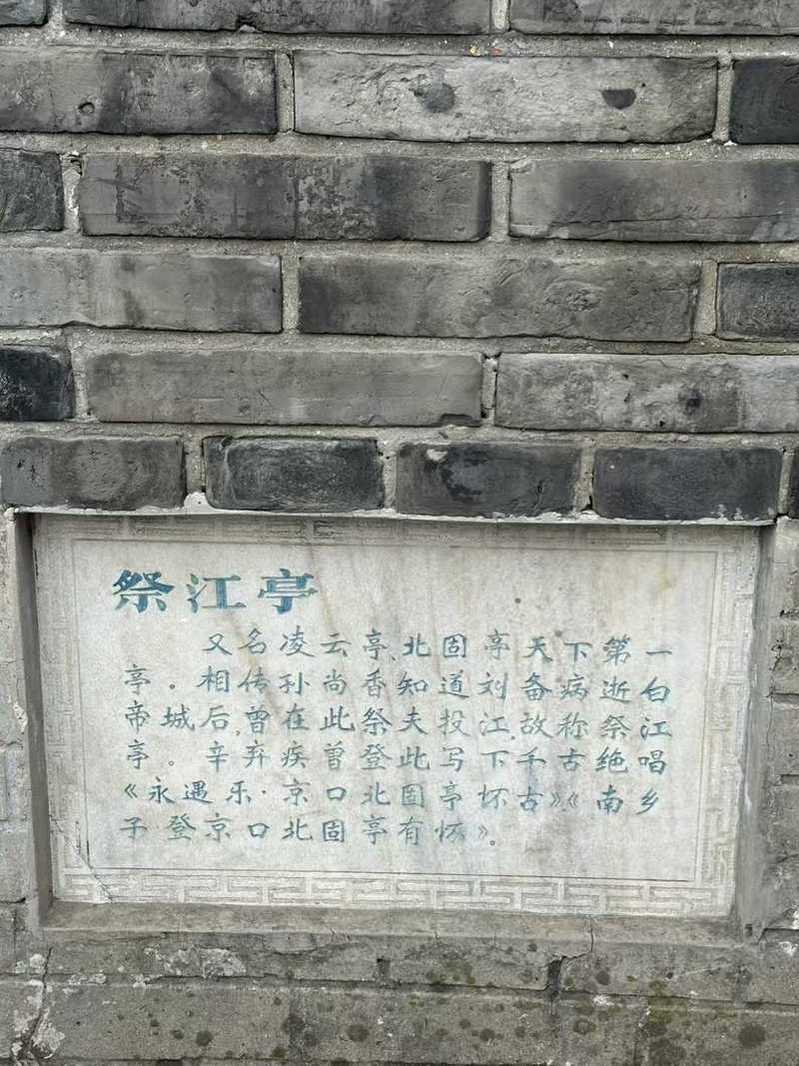 祭江亭
又名凌云亭、北固亭天下第一
亭。相传孙尚香知道刘备病逝白
帝城后,曾在此祭夫投江,故称祭江
亭。辛弃疾曾登此写下千古绝唱
《永遇乐·京口北固亭怀古》《南乡
子·登京口北固亭有怀》。